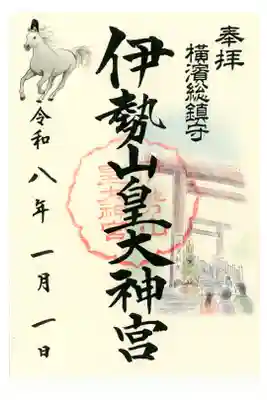 奉拝
横濱総鎮守
伊勢山皇大神宮
令和八年一月一日